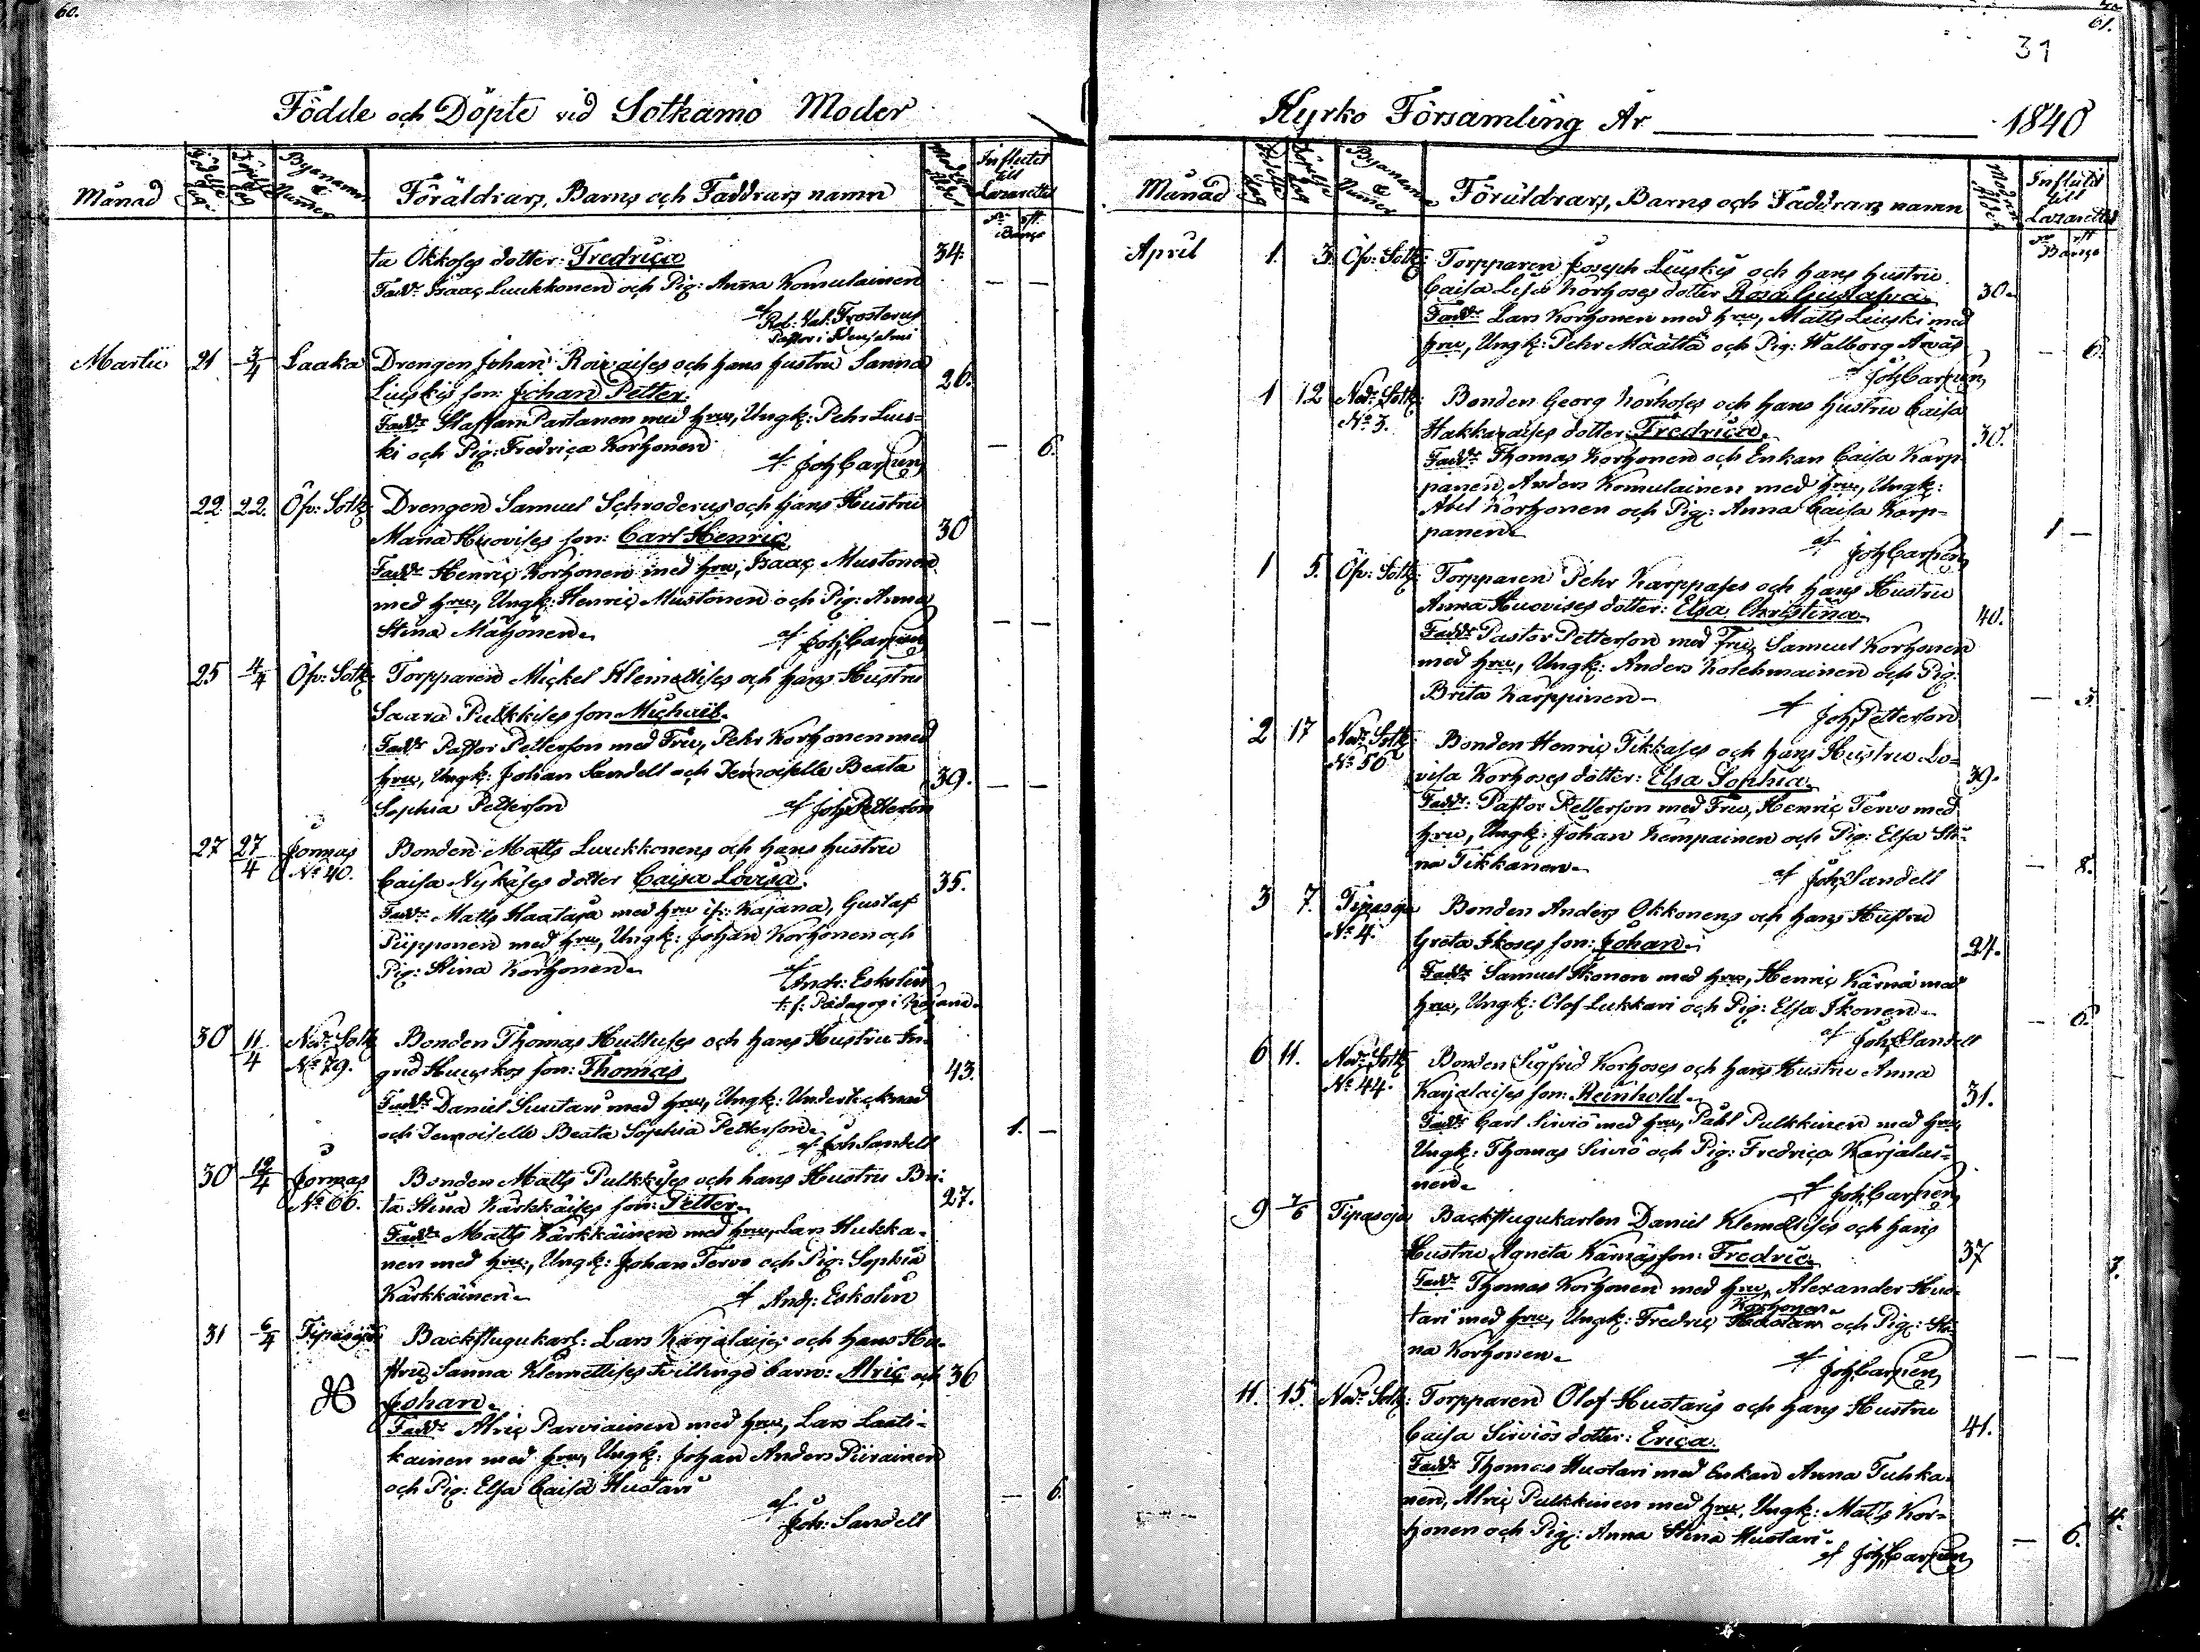 60.
Födde och Döpte vid Sotkamo Moder
Månad
Födelse dag
Döpelse dag
Byanamn & Numer
Föräldrars, Barns och Faddrars namn
Modrens ålder
Influtit till Lazarettet
Banço
ta Okkoses dotter: Fredriça 34.
Fadd: Isaaç Luukkonen och Pig: Anna Komulainen — —
af
Past: Val: Frosterus
Pastor i Idensalmi
Martii 21 3/4 Laaka Drengen Johan Roivaises och hans hustru Sanna
Liuskis son: Johan Petter. 26.
Fadd: Staffan Partanen med hru, Ungk: Pehr Lius-
ki och Pig: Fredriça Korhonen — 6.
af Joh: Carpen
22 22. Öfv: Sotk: Drengen Samuel Schroderus och hans Hustru
Maria Huovises son: Carl Henriç 30
Fadd: Henriç Korhonen med hru, Isaaç Mustonen
med hru, Ungk: Henriç Mustonen och Pig: Anna
Stina Mähönen. — —
af Joh: Carpen
25 4/4 Öfv: Sotk: Torpparen Mickel Klemettises och hans Hustru
Saara Pulkkises son Michael.
Fadd: Pastor Petterson med Fru, Pehr Korhonen med
hru, Ungk: Johan Sandell och Demoiselle Beata 39. — —
Sophia Petterson af Joh: Petterson
27 27/4 Jormas Bonden Matts Luukkonens och hans hustru
No 40. Caisa Nykäses dotter Caisa Lovisa. 35.
Fadd: Matts Haataja med hru ifr: Kajana, Gustaf
Piipponen med hru, Ungk: Johan Korhonen och
Pig: Stina Korhonen.
af
Andr: Eskolin
t: f: Pædagog i Kajana.
30 11/4 Ned: Sotk: Bonden Thomas Huttuses och hans Hustru In-
No 79. grid Huuskos son: Thomas 43.
Fadd: Daniel Suutari med hru, Ungk: Undertecknad
och Demoiselle Beata Sophia Petterson. 1. —
af Joh Sandell
30 12/4 Jormas Bonden Matts Pulkkises och hans Hustru Bri-
No 66. ta Stina Kärkkäises son: Petter. 27.
Fadd: Matts Kärkkäinen med hru, Lars Hukka-
nen med hru, Ungk: Johan Tervo och Pig: Sophia
Kärkkäinen. af Andr: Eskolin
31 6/4 Tipasoja Backstugukarl: Lars Karjalaises och hans Hu-
stru Sanna Klemettises tvillinge barn: Alriç och 36
Johan.
Fadd: Alriç Parviainen med hru, Lars Laati-
kainen med hru, Ungk: Johan Anders Piirainen
och Pig: Elsa Caisa Huotari — 6.
af
Joh: Sandell
61.
31
Kyrko Församling År 1840
Månad
Födelse dag
Döpelse dag
Byanamn & Numer
Föräldrars, Barns och Faddrars namn
Modrens ålder
Influtit till Lazarettet
Banço
April 1. 3. Öfv: Sotk: Torpparen Joseph Liuskis och hans hustru
Caisa Lisa Korhoses dotter Rosa Gustafva. 30.
Fadd: Lars Korhonen med hru, Matts Liuski med
hru, Ungk: Pehr Määttä och Pig: Walborg Arvas — 6.
af Joh: Carpen
1 12 Ned: Sotk: Bonden Georg Korhoses och hans hustru Caisa
No 3. Hakkaraises dotter Fredriça. 30.
Fadd: Thomas Korhonen och Enkan Caisa Karp-
panen, Anders Komulainen med hru, Ungk:
Abel Korhonen och Pig: Anna Caisa Karp-
panen. 1 —
af Joh: Carpen
1 5. Öfv: Sotk: Torpparen Pehr Karppases och hans Hustru
Anna Huovises dotter: Elsa Christina. 40.
Fadd: Pastor Petterson med Fru, Samuel Korhonen
med hru, Ungk: Anders Kolehmainen och Pig:
Brita Karppinen. — 3.
af Joh: Petterson
2 17 Ned: Sotk: Bonden Henriç Tikkases och hans Hustru Lo-
No 56 visa Korhoses dotter: Elsa Sophia. 39.
Fadd: Pastor Petterson med Fru, Henriç Tervo med
hru, Ungk: Johan Kemppainen och Pig: Elsa Sti-
na Tikkanen. — 8.
af Joh: Sandell
3 7. Tipasoja Bonden Anders Okkonens och hans Hustru
No 4. Greta Ikoses son: Johan. 24.
Fadd: Samuel Ikonen med hru, Henriç Kärnä med
hru, Ungk: Olof Lukkari och Pig: Elsa Ikonen. — 6.
af Joh: Sandell
6 11. Ned: Sotk: Bonden Sigfrid Korhoses och hans Hustru Anna
No 44. Karjalaises son: Reinhold. 31.
Fadd: Carl Sirviö med hru, Påhl Pulkkinen med hru,
Ungk: Thomas Sirviö och Pig: Fredriça Karjalai-
nen.
af Joh: Carpen
9 7/6 Tipasoja Backstugukarlen Daniel Klemettises och hans
Hustru Agneta Kärnäs son: Fredriç. 37
7.
Fadd: Thomas Korhonen med hru, Alexander Huo-
Korhonen
tari med hru, Ungk: Fredriç Huotari och Pig: Sti-
na Korhonen. — —
af Joh: Carpen
11. 15. Ned: Sotk: Torpparen Olof Huotaris och hans Hustru
Caisa Sirviös dotter: Eriça. 41.
Fadd: Thomas Huotari med Enkan Anna Tuhka-
nen, Alriç Pulkkinen med hru, Ungk: Matts Kor-
4.
honen och Pig: Anna Stina Huotari. — 6.
af Joh: Carpen